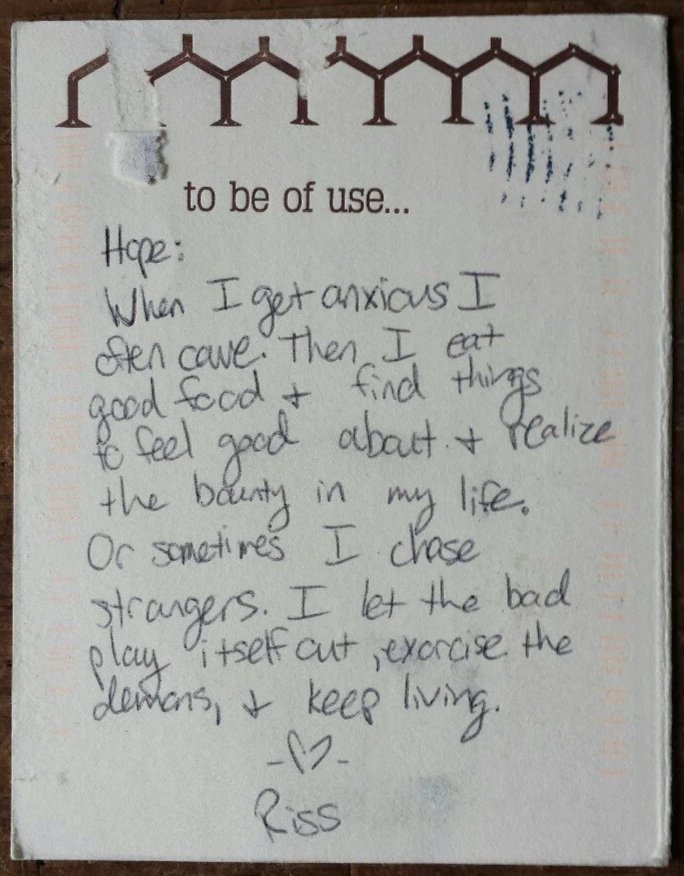 to be of use...
Hope:
When I get anxious I
often cave. Then I eat
good food + find things
to feel good about + realize
the bounty in my life.
Or sometimes I chase
strangers. I let the bad
play itself out, exorcise the
demons, + keep living.
Riss